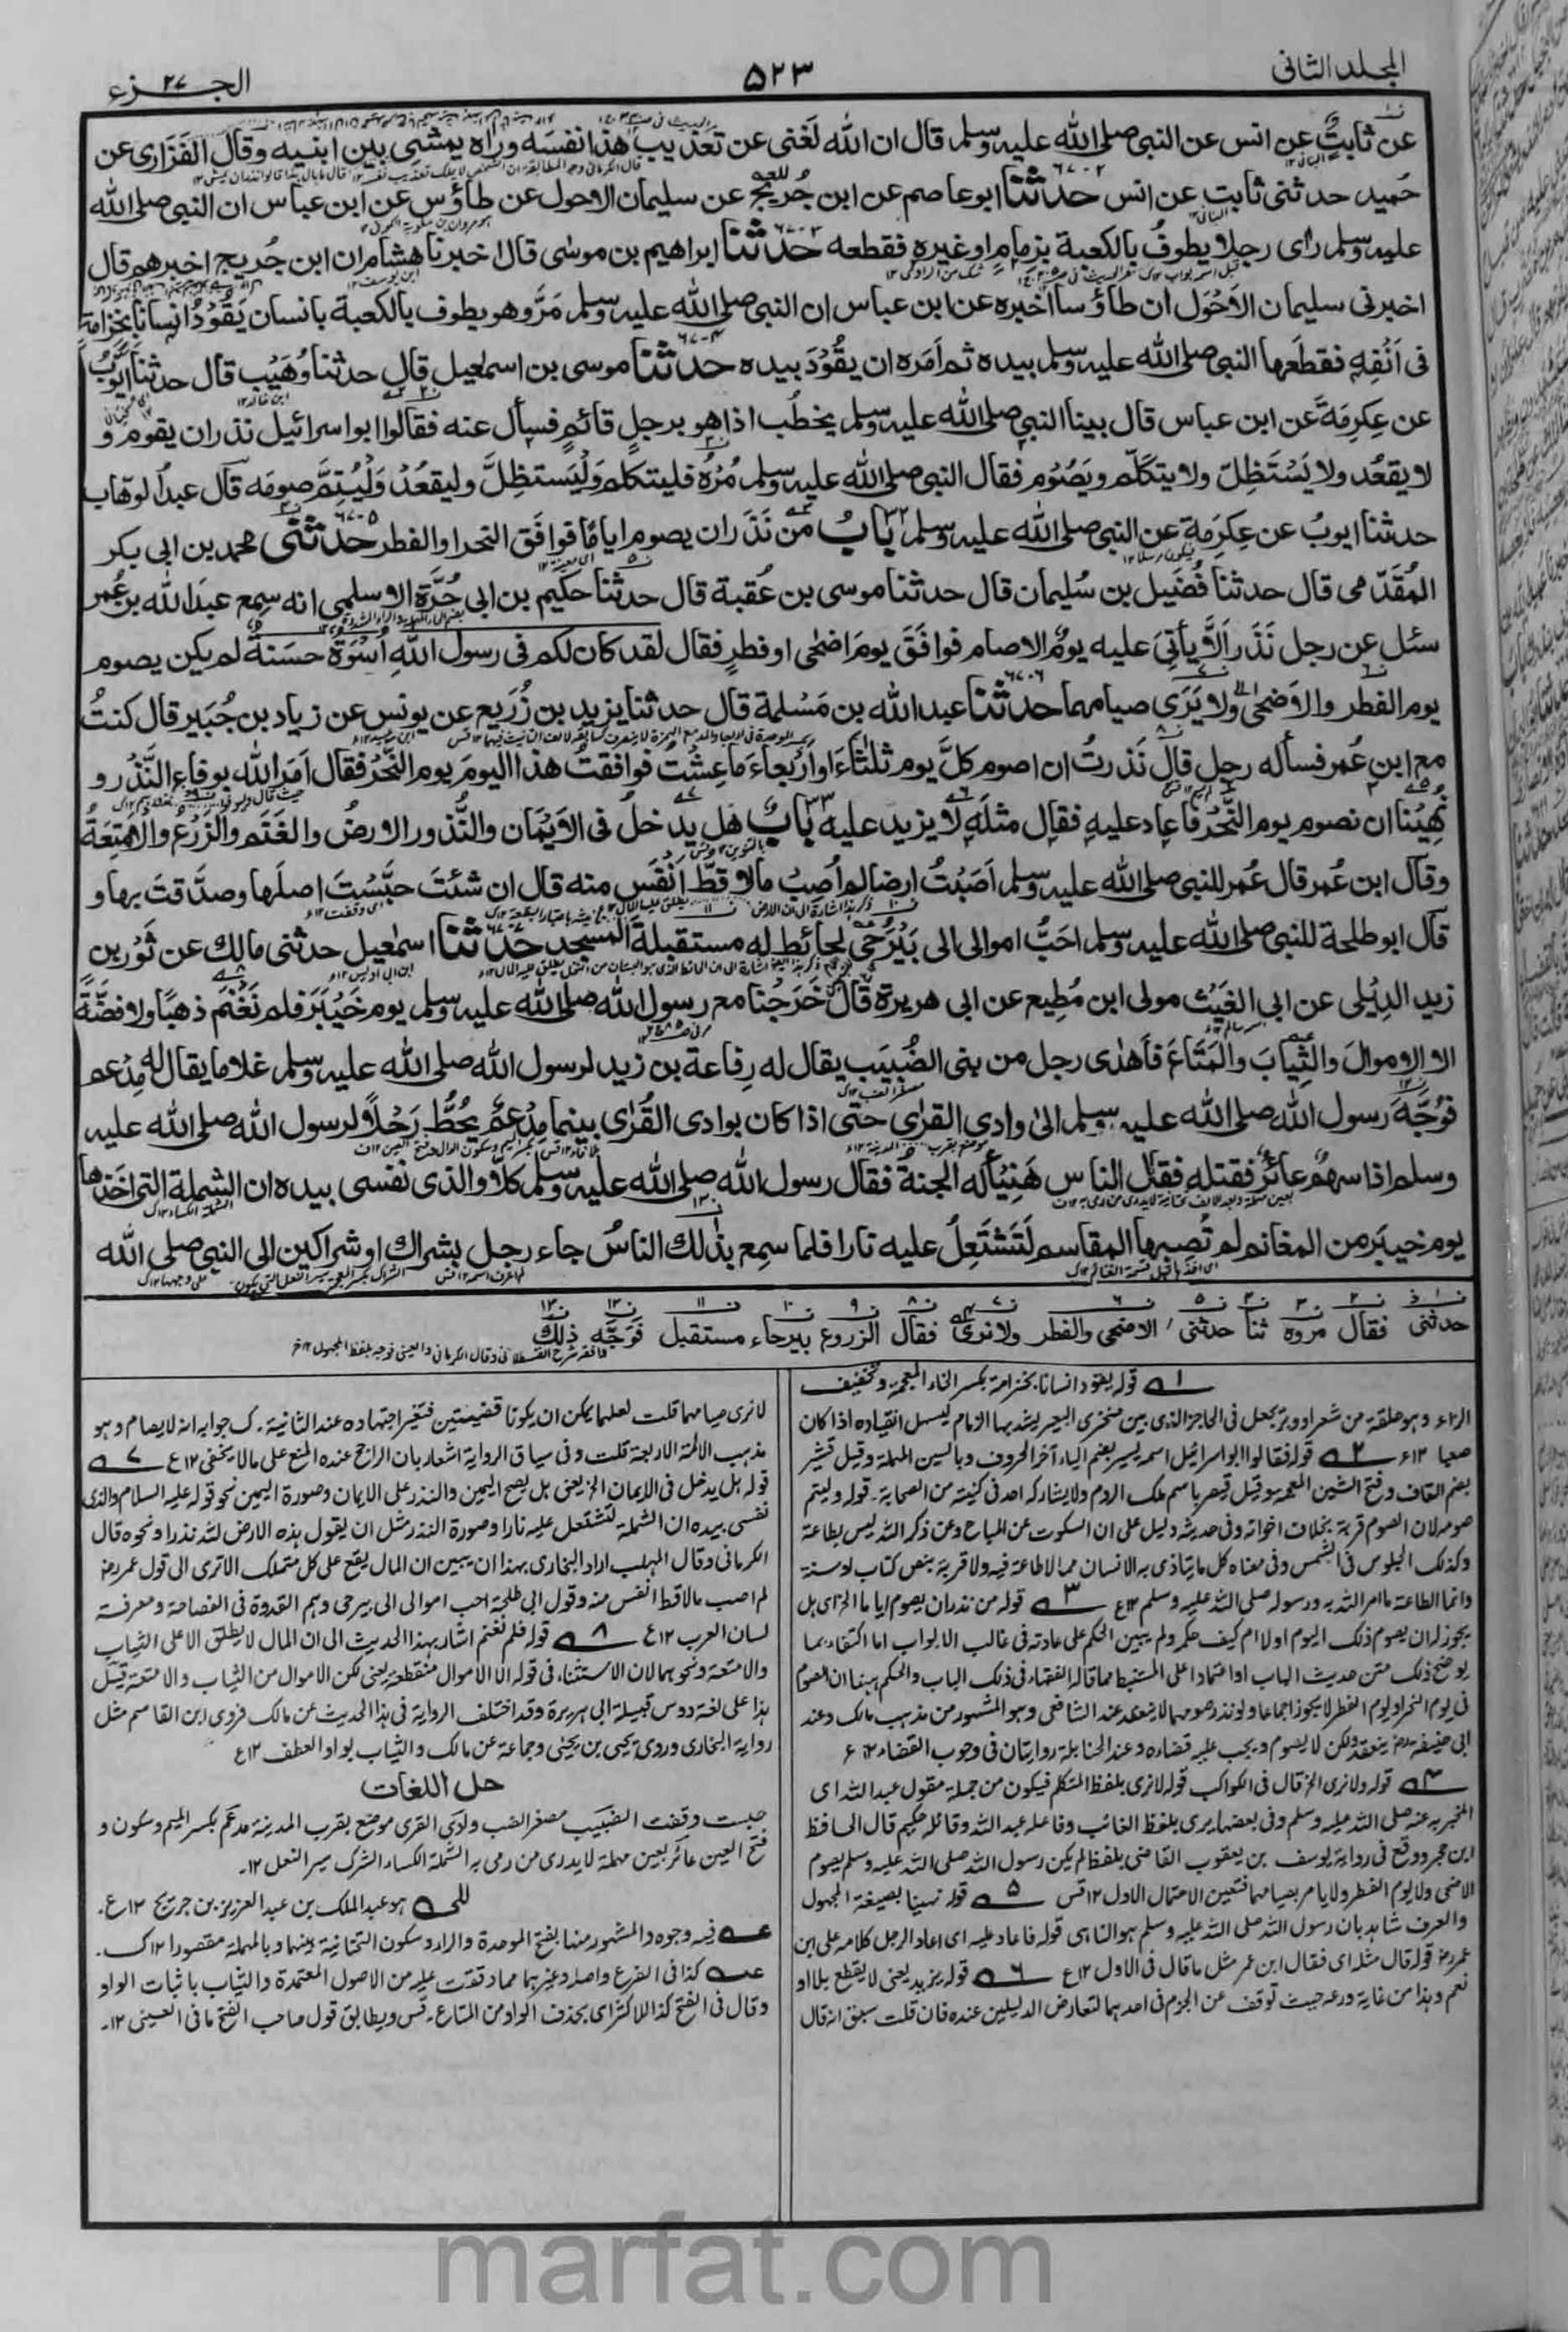 المجلد الثانی
۵۲۳
الجزء ۲۷
عن ثابتٍ عن انس عن النبی صلی الله علیه وسلم قال ان الله لَغنی عن تعذیب هذا نفسَه وراٰه یمشی بین ابنیه وقال الفَزَاری عن
حُمید حدثنی ثابت عن انس حدثنا ابوعاصم عن ابن جُریج عن سلیمان الاحول عن طاؤس عن ابن عباس ان النبی صلی الله
علیه وسلم رأی رجلا یطوف بالکعبة بزمام او غیره فقطعه حدثنا ابراهیم بن موسٰی قال اخبرنا هشام ان ابن جُریج اخبرهم قال
اخبرنی سلیمان الاَحْوَل ان طاؤسا اخبره عن ابن عباس ان النبی صلی الله علیه وسلم مَرَّ وهو یطوف بالکعبة بانسان یَقُوْدُ انسانا بخزامة
فی اَنْفِه فقطَعها النبی صلی الله علیه وسلم بیده ثم اَمَرَه ان یقُوْدَ بیده حدثنا موسی بن اسمٰعیل قال حدثنا وُهَیْب قال حدثنا ایوبُ
عن عِکرِمَةَ عن ابن عباس قال بینا النبی صلی الله علیه وسلم یخطُب اذا هو برجلٍ قائمٍ فسأل عنه فقالوا ابواسرائیل نذر ان یقوم و
لا یقعُد ولا یَسْتَظِلّ ولا یتکلّم ویَصُوْم فقال النبی صلی الله علیه وسلم مُرْهُ فلیتکلم وَلْیَستظِلَّ ولیقعُدْ وَلْیُتِمَّ صومَه قال عبدُالوهاب
حدثنا ایوبُ عن عِکرِمَة عن النبی صلی الله علیه وسلم بَابُ من نَذَر ان یصوم ایامًا فوافَق النحر او الفطر حدثنی محمد بن ابی بکر
المُقَدَّمی قال حدثنا فُضَیل بن سُلیمان قال حدثنا موسی بن عُقبة قال حدثنا حکیم بن ابی حُرَّة الاسلمی انه سمِع عبدَالله بن عُمر
سئل عن رجل نَذَر اَلَّا یأتیَ علیه یومٌ الا صام فوافَقَ یومَ اضحٰی او فطرٍ فقال لقد کان لکم فی رسول اللهِ اُسْوَةٌ حسَنةٌ لم یکن یصوم
یوم الفطر والاَضحٰی ولا یَرَی صیامهما حدثنا عبدالله بن مَسْلمة قال حدثنا یزید بن زُرَیع عن یونس عن زیاد بن جُبَیر قال کنتُ
مع ابن عُمر فسأله رجل قال نَذرتُ ان اصوم کلَّ یوم ثلٰثاءَ او اَرْبعاءَ ما عِشْتُ فوافقتُ هذا الیومَ یوم النَّحْر فقال اَمَر الله بوفاء النَّذْر و
نُهِیْنا ان نصوم یوم النَّحْر فاعاد علیه فقال مثلَه لا یزید علیه بَابُ هَل یدخلُ فی الاَیْمَان والنُّذُور الارضُ والغَنَم والزَّرْعُ والاَمْتِعَةُ
وقال ابن عُمر قال عُمر للنبی صلی الله علیه وسلم اَصَبْتُ ارضا لم اُصِبْ مالا قطُّ اَنْفَس منه قال ان شئتَ حبَّسْتَ اصلَها وصدَّقتَ بها و
قال ابوطلحة للنبی صلی الله علیه وسلم احَبُّ اموالی الی بَیْرَحٰی لحائطٍ له مستقبلةَ المسجد حدثنا اسمٰعیل حدثنی مالك عن ثَوْر بن
زید الدِیْلی عن ابی الغَیْث مولی ابن مُطِیع عن ابی هریرة قال خَرَجْنا مع رسول الله صلی الله علیه وسلم یوم خَیْبَر فلم نَغْنَم ذهبًا ولا فضّةً
الا الاموالَ والثِّیابَ والمَتَاعَ فاَهدٰی رجل من بنی الضُّبَیب یقال له رِفاعة بن زید لرسول الله صلی الله علیه وسلم غلاما یقال له مِدْعم
فوُجَّهَ رسول الله صلی الله علیه وسلم الیٰ وادی القرٰی حَتّٰی اذا کان بوادی القُرٰی بینما مِدْعَمٌ یحُطُّ رَحْلًا لرسول الله صلی الله علیه
وسلم اذا سهمٌ عائرٌ فقتله فقال الناس هَنِیْئًا له الجنة فقال رسول الله صلی الله علیه وسلم کلّا والذی نفسی بیده ان الشملة التی اخذها
یوم خیبَر من المغانم لم تُصِبها المقاسم لَتَشْتَعِلُ علیه نارا فلما سمِع بذٰلك الناسُ جاء رجل بشراك او شراکین الی النبی صلی الله
حدثنی فقال مروه ثنا حدثنی الاضحی والفطر ولا نری فقال الزروع بیرحاء مستقبل فَوَجَّه ذلك
۱ قوله یقود انسانا بخزامة بکسر الخاء المعجمة وتخفیف
الزاء وهو حلقة من شعر او وبر تجعل فی الحاجز الذی بین منخری البعیر یشد بها الزمام لیسهل انقیاده اذا کان
صعبا ۱۲ع ۲ قوله فقالوا ابواسرائیل اسمه یسیر بضم الیاء آخر الحروف وبالسین المهملة وقیل قشیر
بضم القاف وفتح الشین المعجمة وقیل قیصر باسم ملک الروم ولا یشارکه احد فی کنیته من الصحابة۔ قوله ولیتم
صومه لان الصوم قربة بخلاف اخواته وفی حدیثه دلیل علی ان السکوت عن المباح وعن ذکر الله لیس بطاعة
وکذلک الجلوس فی الشمس وفی معناه کل ما یتاذی به الانسان مما لا طاعة فیه ولا قربة بنص کتاب او سنة
وانما الطاعة ما امر الله به ورسوله صلی الله علیه وسلم ۱۲ع ۳ قوله من نذر ان یصوم ایاما الخ ای هل
یجوز له ان یصوم ذلک الیوم او لا ام کیف حکمه ولم یبین الحکم علی عادته فی غالب الابواب اما اکتفاء بما
یوضح ذلک متن حدیث الباب او اعتمادا علی المستنبط مما قاله الفقهاء فی ذلک الباب والحکم ههنا ان الصوم
فی یوم النحر او یوم الفطر لا یجوز اجماعا ولو نذر صومهما لا ینعقد عند الشافعی وهو المشهور من مذهب مالک وعند
ابی حنیفة ینعقد ولکن لا یصوم ویجب علیه قضاءه وعند الحنابلة روایتان فی وجوب القضاء ۱۲ ع
۴ قوله ولا نری الخ قال فی الکواکب قوله لا نری بلفظ المتکلم فیکون من جملة مقول عبدالله ای
المخبر به عنه صلی الله علیه وسلم وفی بعضها یری بلفظ الغائب وفاعله عبدالله وقائله حکیم قال الحافظ
ابن حجر ووقع فی روایة یوسف بن یعقوب القاضی بلفظ لم یکن رسول الله صلی الله علیه وسلم یصوم
الاضحی ولا یوم الفطر ولا یامر بصیامهما فتعین الاحتمال الاول ۱۲ قس ۵ قوله نهینا بصیغة المجهول
والعرف شاهد بان رسول الله صلی الله علیه وسلم هو الناهی قوله فاعاد علیه ای اعاد الرجل کلامه علی ابن
عمر قوله قال مثله ای فقال ابن عمر مثل ما قال فی الاول ۱۲ع ۶ قوله لا یزید یعنی لا یقطع بلا او
نعم وهذا من غایة ورعه حیث توقف عن الجزم فی احدهما لتعارض الدلیلین عنده فان قلت سبق انه قال
لا نری صیامهما قلت لعلهما یمکن ان یکونا قضیتین فتغیر اجتهاده عند الثانیة۔ ک جوابه انه لا یصام وهو
مذهب الائمة الاربعة قلت وفی سیاق الروایة اشعار بان الراجح عنده المنع علی ما لا یخفی ۱۲ ع ۷
قوله هل یدخل فی الایمان الخ یعنی هل یصح الیمین والنذر علی الاعیان وصورة الیمین نحو قوله علیه السلام والذی
نفسی بیده ان الشملة لتشتعل علیه نارا وصورة النذر مثل ان یقول هذه الارض لله نذرا ونحوه قال
الکرمانی وقال المهلب اراد البخاری بهذا ان یبین ان المال یقع علی کل متملک الا تری الی قول عمر
لم اصب مالا قط انفس منه وقول ابی طلحة احب اموالی الی بیرحی وهم القدوة فی الفصاحة ومعرفة
لسان العرب ۱۲ ع ۸ قوله فلم نغنم اشار بهذا الحدیث الی ان المال لا یطلق الا علی الثیاب
والامتعة ونحوهما لان الاستثناء فی قوله الا الاموال منقطع یعنی لکن الاموال من الثیاب والامتعة قیل
هذا علی لغة دوس قبیلة ابی هریرة وقد اختلف الروایة فی هذا الحدیث عن مالک فروی ابن القاسم مثل
روایة البخاری وروی یحیی بن یحیی وجماعة عن مالک والثیاب بواو العطف ۱۲ع
حل اللغات
حبست وقفت الضبیب مصغر الضب وادی القری موضع بقرب المدینة مدعم بکسر المیم وسکون و
فتح العین عائر بعین مهملة لا یدری من رمی به الشملة الکساء الشرک سیر النعل ۱۲۔
للعه هو عبدالملک بن عبدالعزیز بن جریج ۱۲ع۔
عه فیه وجوه والمشهور منها بفتح الموحدة والراء وسکون التحتانیة بینهما وبالمهملة مقصورا ۱۲ک۔
عه کذا فی الفرع واصله وغیرهما مما وقفت علیه من الاصول المعتمدة والثیاب باثبات الواو
وقال فی الفتح کذا للاکثر ای بحذف الواو من المتاع۔ قس ویطابق قول صاحب الفتح ما فی العینی ۱۲۔
marfat.com